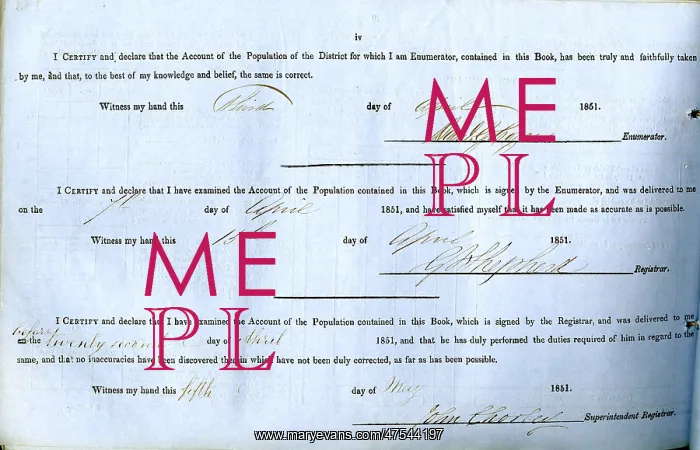 iv
I CERTIFY and declare that the Account of the Population of the District for which I am Enumerator, contained in this Book, has been truly and faithfully taken
by me, and that, to the best of my knowledge and belief, the same is correct.
Witness my hand this Third day of April 1851.
Enumerator.
ME
PL
I CERTIFY and declare that I have examined the Account of the Population contained in this Book, which is signed by the Enumerator, and was delivered to me
on the 7th day of April 1851, and have satisfied myself that it has been made as accurate as is possible.
Witness my hand this day of April 1851.
G Shepherd Registrar.
ME
PL
I CERTIFY and declare that I have examined the Account of the Population contained in this Book, which is signed by the Registrar, and was delivered to me
before
on the twenty second day of April 1851, and that he has duly performed the duties required of him in regard to the
same, and that no inaccuracies have been discovered therein which have not been duly corrected, as far as has been possible.
Witness my hand this fifth day of May 1851.
John Chorley Superintendent Registrar.
www.maryevans.com/47544197